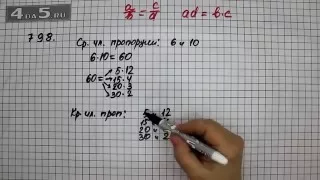 4DA5.RU
a/b = c/d    ad = b·c
798.
Ср. чл. пропорции: 6 и 10
6·10 = 60
60 = 5·12
15·4
20·3
30·2
Кр. чл. проп: 5 12
15
20
30 2